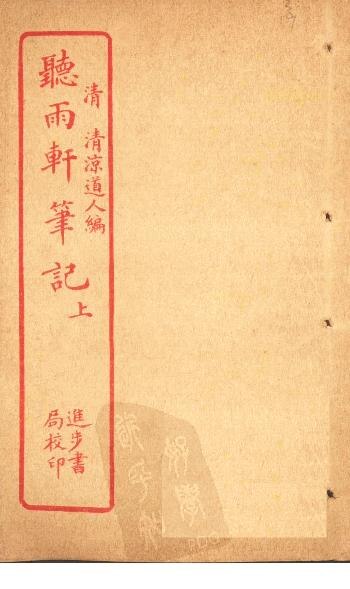 清 清涼道人編
聽雨軒筆記上
進步書
局校印